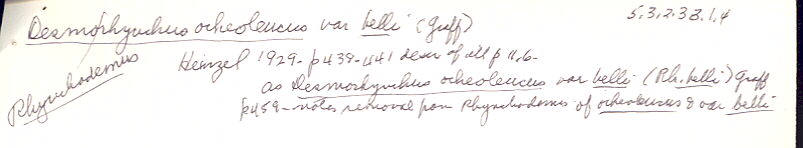 Desmorhynchus ocheoleucus var belli (Graff)
5,3,2,3B,1,4
Rhynchodemus
Heinzel 1929 - p439-441 descr & ill p 11,6-
as Desmorhynchus ocheoleucus var belli (Rh. belli) Graff
p459 - notes removal from Rhynchodemus of ocheoleucus & var belli